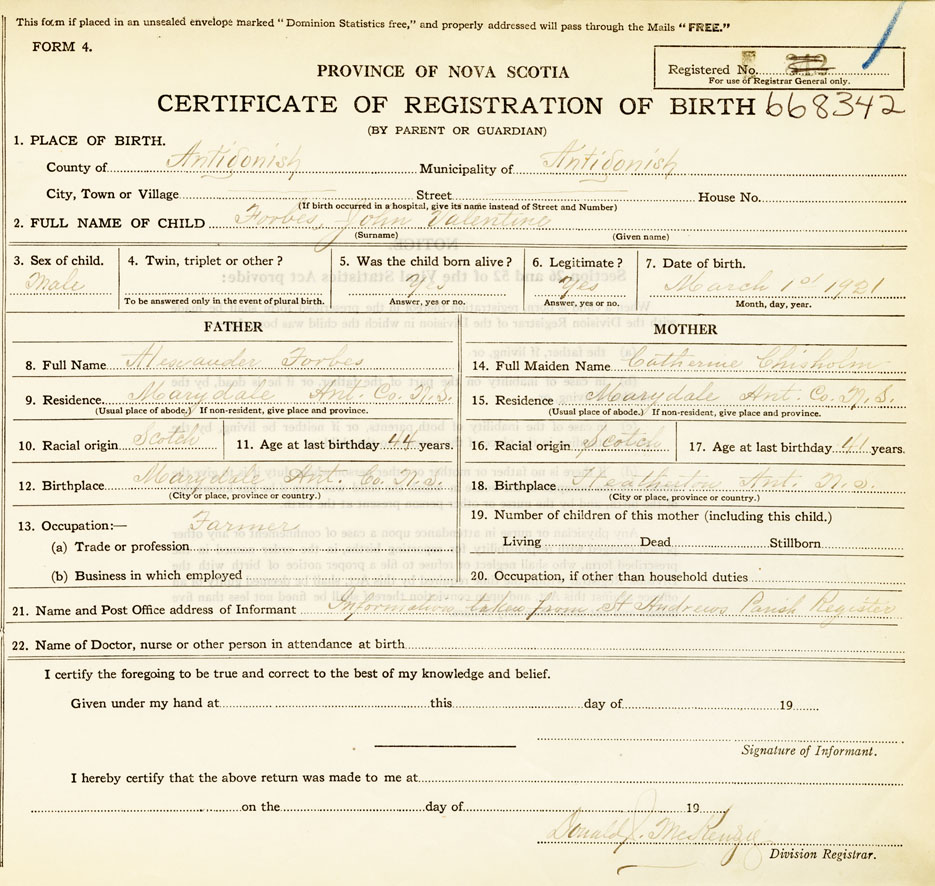 This form if placed in an unsealed envelope marked "Dominion Statistics free," and properly addressed will pass through the Mails "FREE."
FORM 4.
Registered No.
For use of Registrar General only.
PROVINCE OF NOVA SCOTIA
CERTIFICATE OF REGISTRATION OF BIRTH 668342
(BY PARENT OR GUARDIAN)
1. PLACE OF BIRTH.
County of Antigonish Municipality of Antigonish
City, Town or Village Street House No.
(If birth occurred in a hospital, give its name instead of Street and Number)
2. FULL NAME OF CHILD Forbes, John Valentine
(Surname) (Given name)
3. Sex of child. 4. Twin, triplet or other? 5. Was the child born alive? 6. Legitimate? 7. Date of birth.
Male Yes Yes March 1st 1921
To be answered only in the event of plural birth. Answer, yes or no. Answer, yes or no. Month, day, year.
FATHER MOTHER
8. Full Name Alexander Forbes 14. Full Maiden Name Catherine Chisholm
9. Residence Marydale Ant. Co. N.S. 15. Residence Marydale Ant. Co. N.S.
(Usual place of abode.) If non-resident, give place and province. (Usual place of abode.) If non-resident, give place and province.
10. Racial origin Scotch 11. Age at last birthday 44 years. 16. Racial origin Scotch 17. Age at last birthday 41 years.
12. Birthplace Marydale Ant. Co. N.S. 18. Birthplace Heatherton Ant. N.S.
(City or place, province or country.) (City or place, province or country.)
13. Occupation:— Farmer 19. Number of children of this mother (including this child.)
(a) Trade or profession Living Dead Stillborn
(b) Business in which employed 20. Occupation, if other than household duties
21. Name and Post Office address of Informant Information taken from St Andrews Parish Register
22. Name of Doctor, nurse or other person in attendance at birth
I certify the foregoing to be true and correct to the best of my knowledge and belief.
Given under my hand at this day of 19
Signature of Informant.
I hereby certify that the above return was made to me at
on the day of 19
Donald J. McKenzie
Division Registrar.